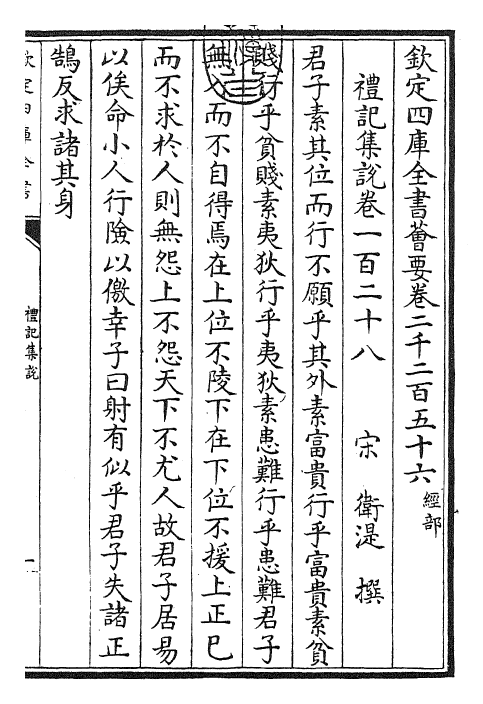 欽定四庫全書薈要卷二千二百五十六 經部
禮記集說卷一百二十八 宋 衛湜 撰
君子素其位而行不願乎其外素富貴行乎富貴素貧
賤行乎貧賤素夷狄行乎夷狄素患難行乎患難君子
無入而不自得焉在上位不陵下在下位不援上正已
而不求於人則無怨上不怨天下不尤人故君子居易
以俟命小人行險以儌幸子曰射有似乎君子失諸正
鵠反求諸其身
欽定四庫全書
禮記集說
一